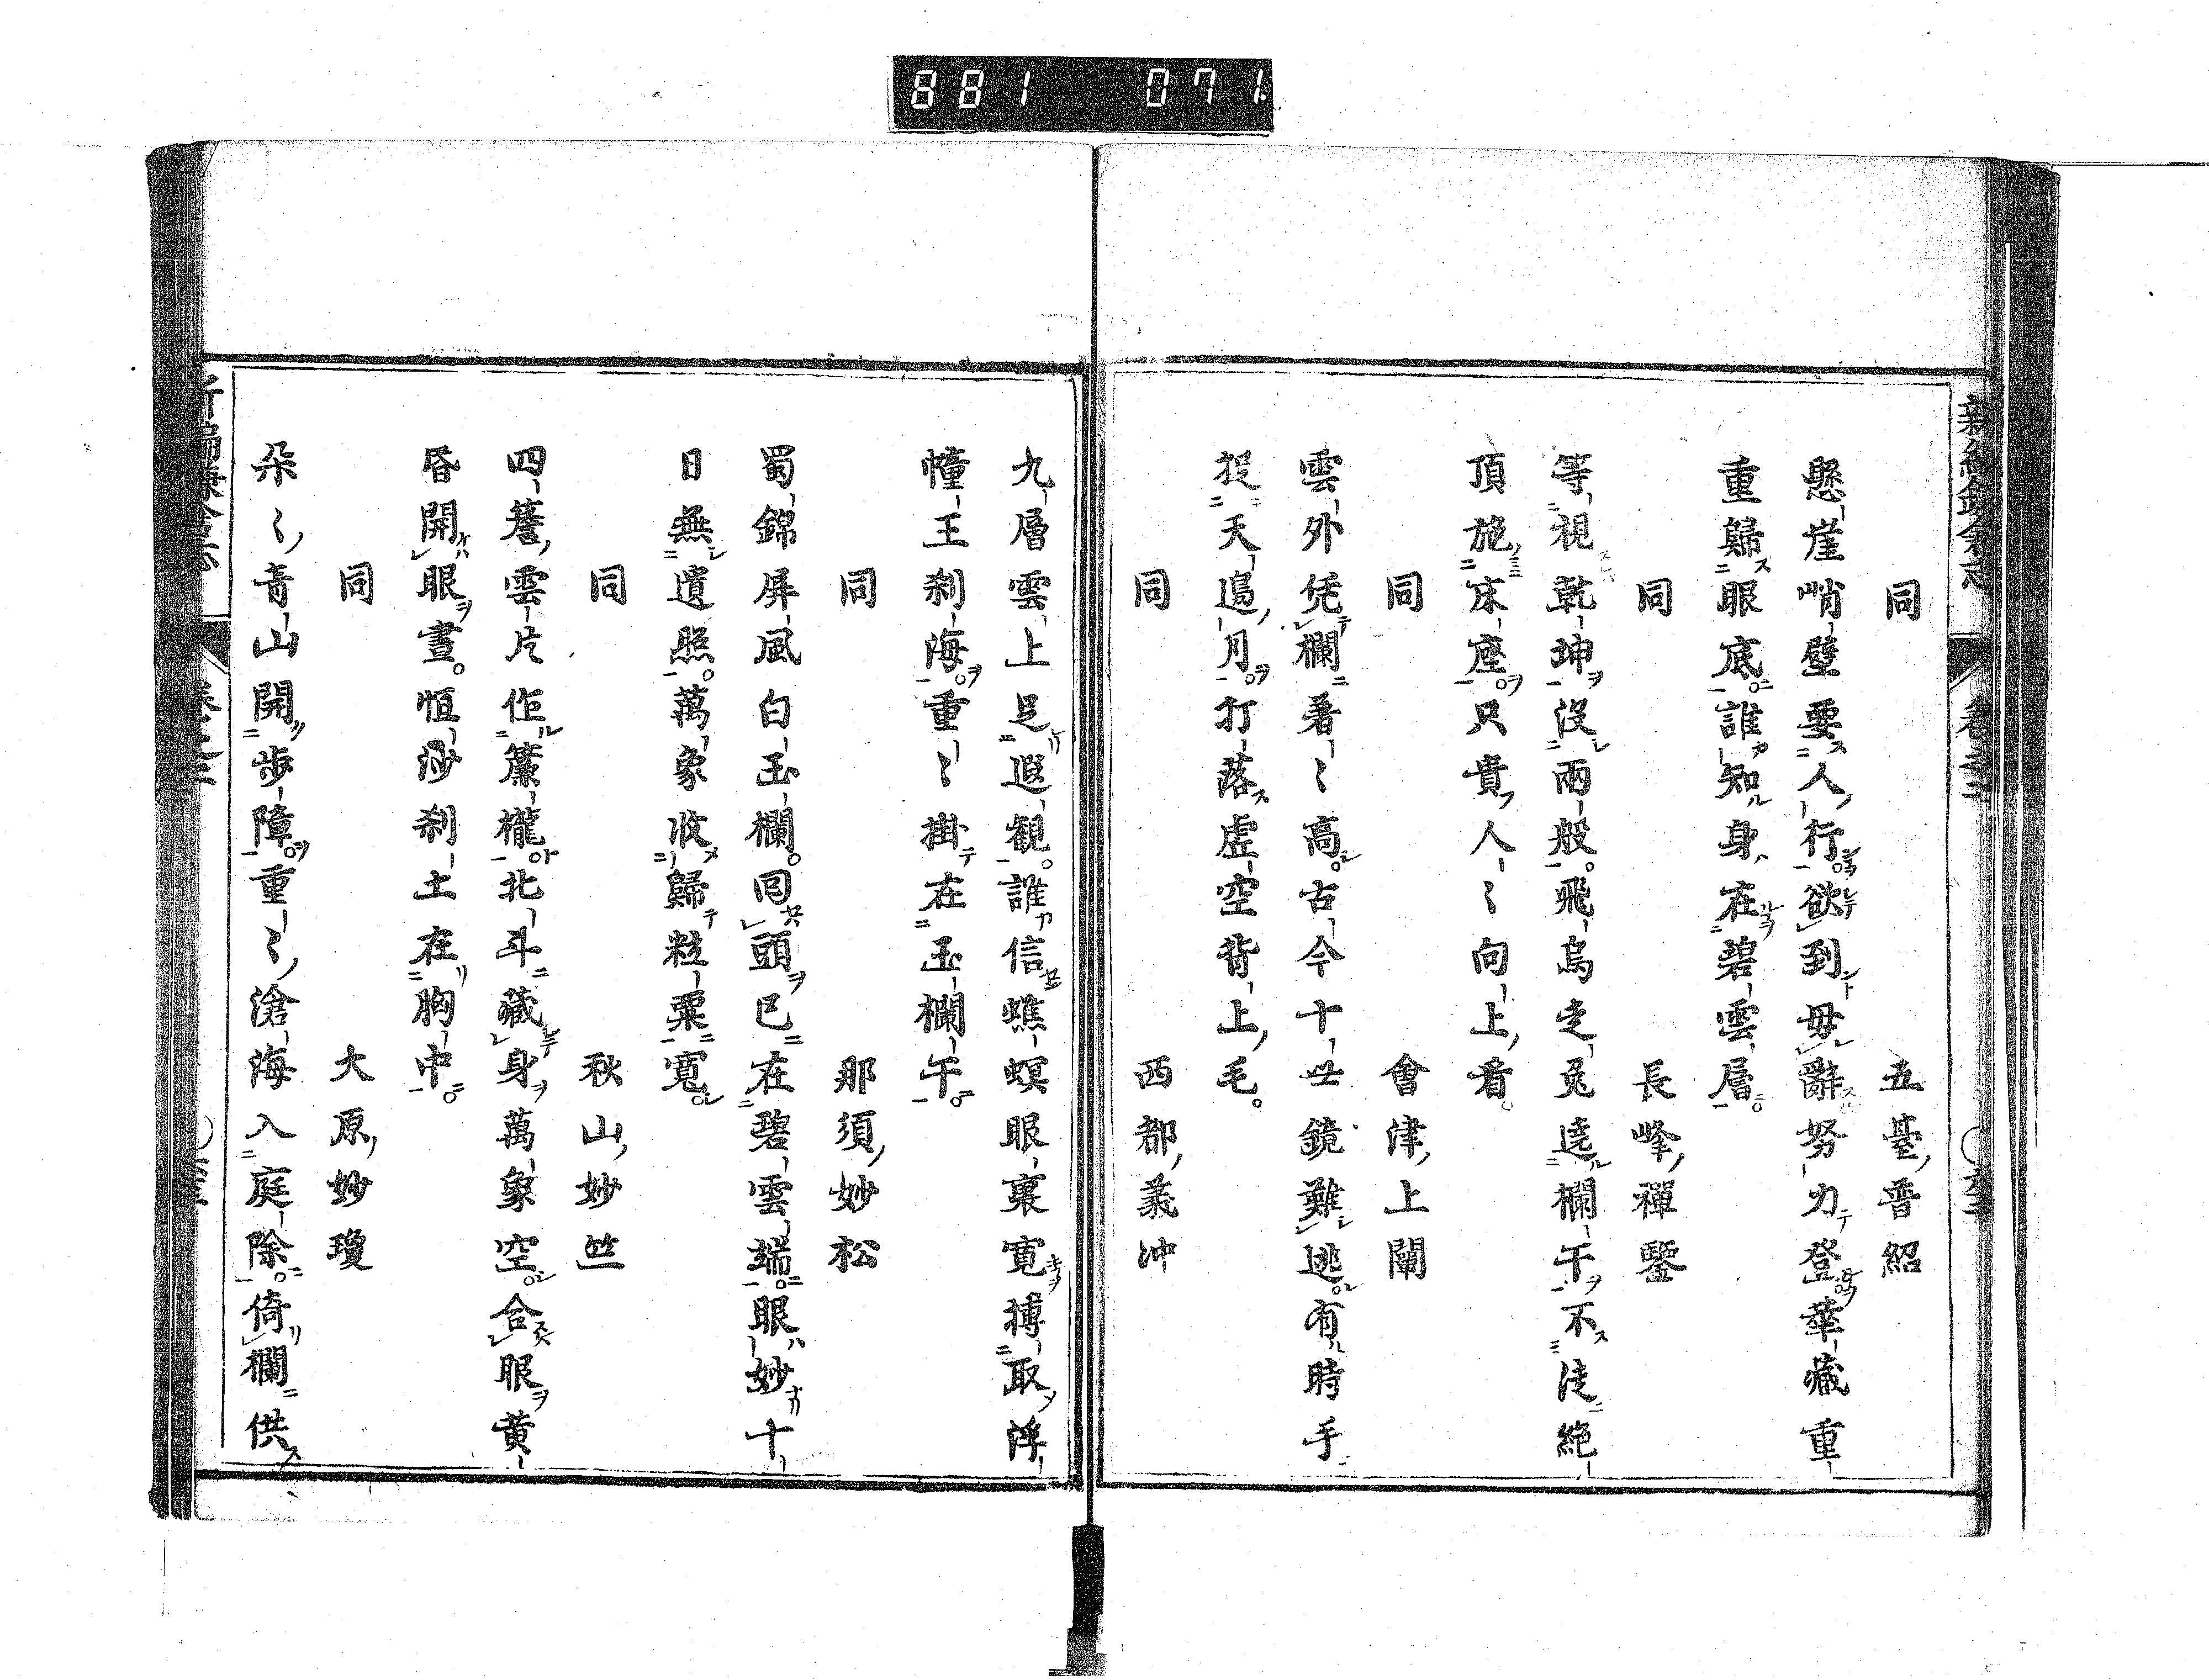 881 071
同 五臺普紹
懸崖峭壁要人行欲到毋辭努力登華藏重
重歸眼底誰知身在碧雲層
同 長峰禪鑒
等視乾坤沒兩般飛烏走兔遶欄干不徒絶
頂施床座只貴人〻向上看
同 會津上闡
雲外凭欄着〻高古今十世鏡難逃有時手
捉天邉月打落虚空背上毛
同 西都義冲
九層雲上足遐観誰信蟭螟眼裏寛搏取浮
幢王刹海重〻掛在玉欄干
同 那須妙松
蜀錦屏風白玉欄回頭已在碧雲端眼妙十
日無遺照萬象收歸粒粟寛
同 秋山妙竺
四簷雲片作簾櫳北斗藏身萬象空合眼黄
昏開眼晝恒沙刹土在胸中
同 大原妙瓊
朵〻青山開步障重〻滄海入庭除倚欄供